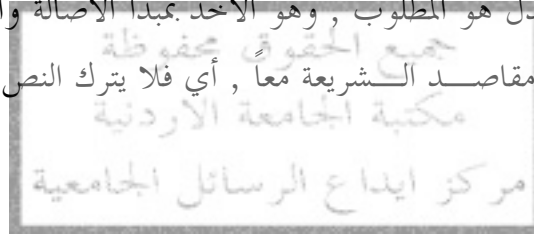 دل هو المطلوب , وهو الأخذ بمبدأ الأصالة وا
جميع الحقوق محفوظة
مقاصــد الــشريعة معاً , أي فلا يترك النص
مكتبة الجامعة الاردنية
مركز ايداع الرسائل الجامعية